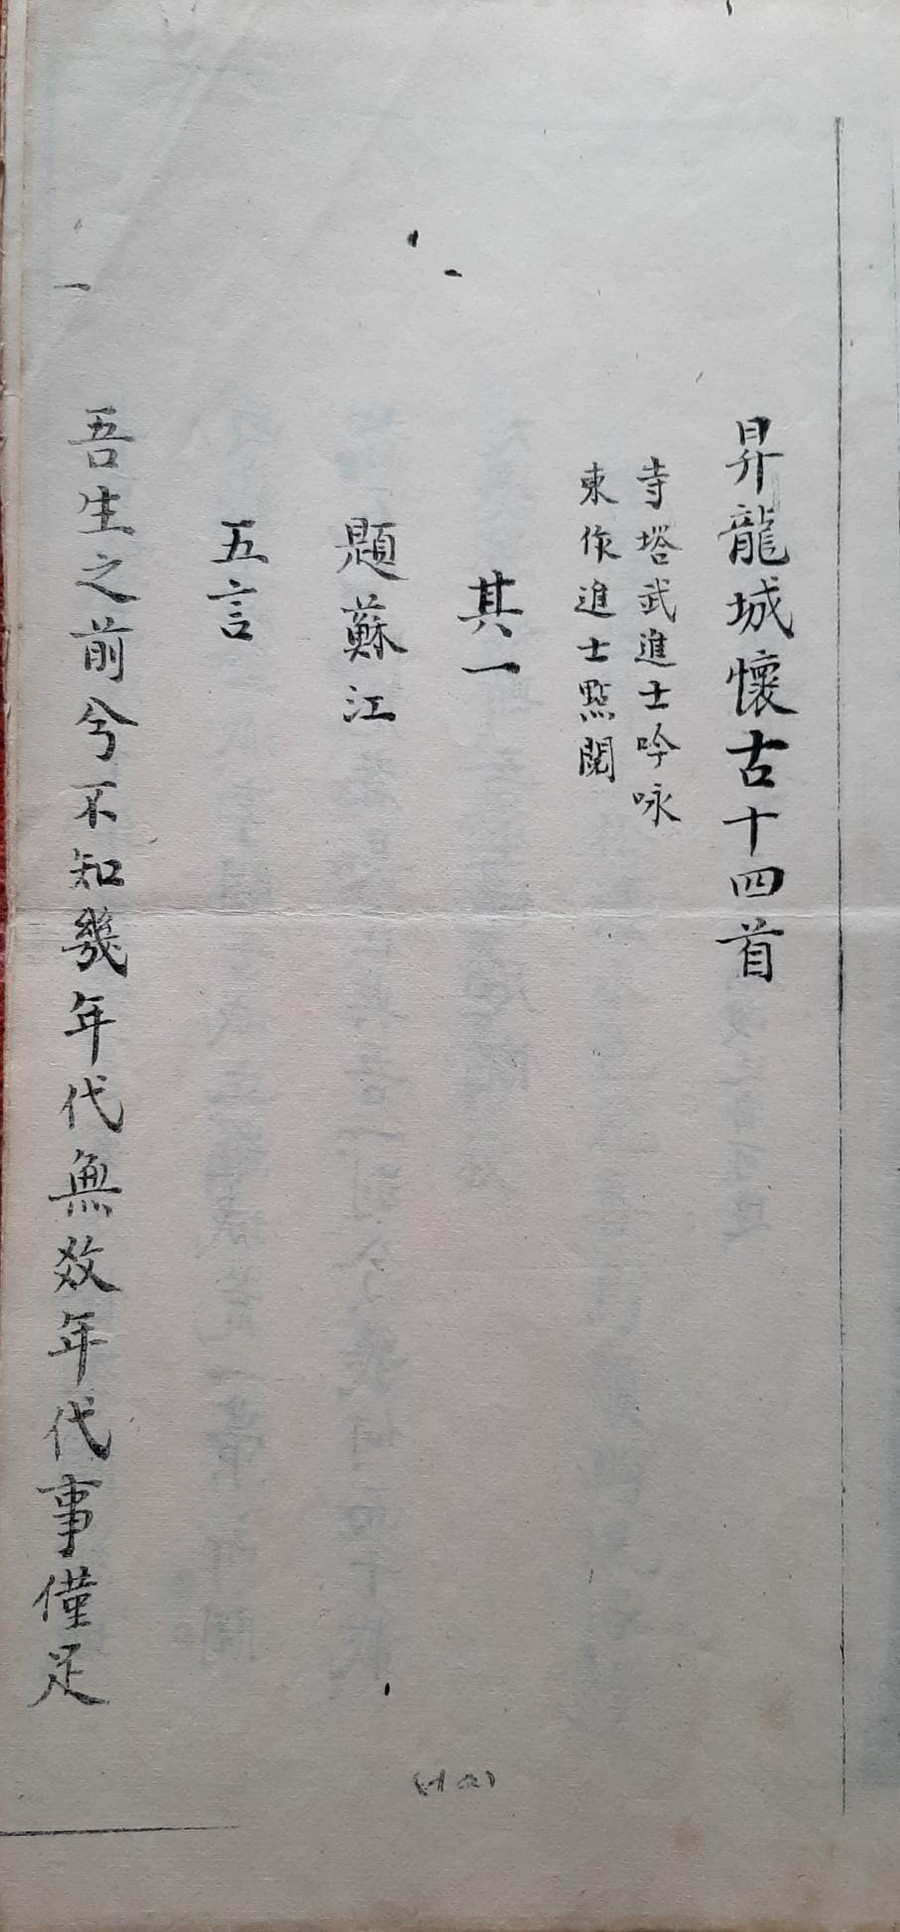 昇龍城懷古十四首
寺塔武進士吟咏
東作進士㸃閱
其一
題蘇江
五言
一
吾生之前兮不知幾年代無效年代事僅足